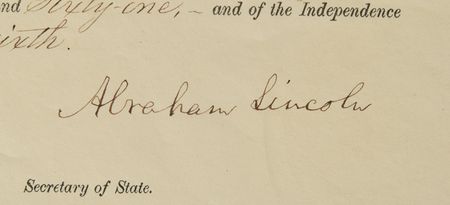 nd Sixty-one, – and of the Independence
ixth.
Abraham Lincoln
Secretary of State.